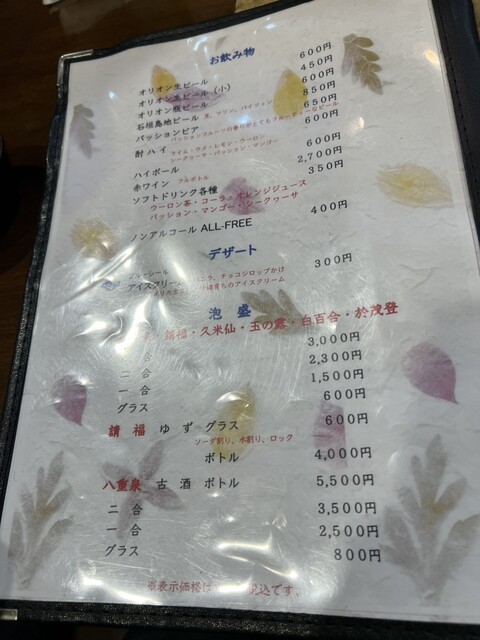 お飲み物
オリオン生ビール 600円
オリオン生ビール (小) 450円
オリオン瓶ビール 600円
石垣島地ビール 850円
パッションビア 650円
パッションフルーツの香りがとてもフルーティーなビール
酎ハイ ライム・ウメ・レモン・ウーロン 600円
シークヮーサ・パッション・マンゴー
ハイボール 600円
赤ワイン フルボトル 2,700円
ソフトドリンク各種 350円
ウーロン茶・コーラ・オレンジジュース
パッション・マンゴー・シークヮーサ
ノンアルコール ALL-FREE 400円
デザート
ブルーシール
アイスクリーム バニラ、チョコシロップかけ 300円
育ちのアイスクリーム
泡盛
請福・久米仙・玉の露・白百合・於茂登
合 3,000円
二合 2,300円
一合 1,500円
グラス 600円
請福 ゆず グラス 600円
ソーダ割り、水割り、ロック
ボトル 4,000円
八重泉 古酒 ボトル 5,500円
二合 3,500円
一合 2,500円
グラス 800円
※表示価格は 税込です。